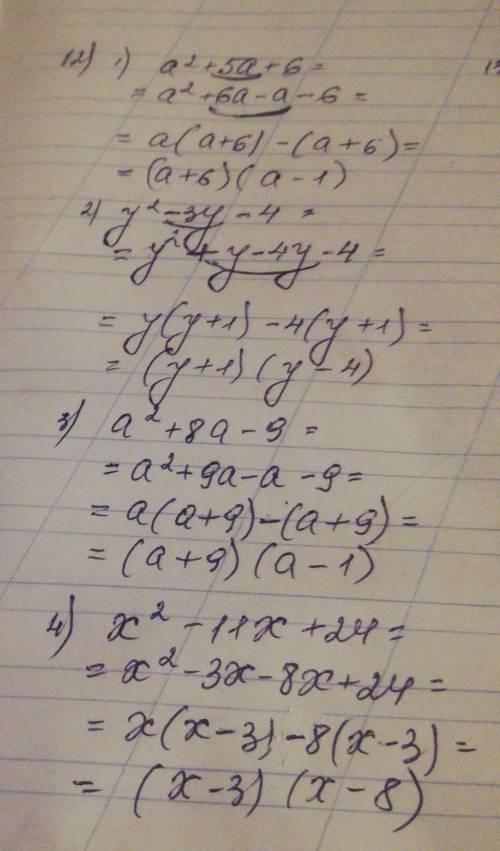 12) 1) a² + 5a + 6 =
= a² + 6a - a - 6 =
= a(a+6) - (a+6) =
= (a+6)(a-1)
2) y² - 3y - 4 =
= y² + y - 4y - 4 =
= y(y+1) - 4(y+1) =
= (y+1)(y-4)
3) a² + 8a - 9 =
= a² + 9a - a - 9 =
= a(a+9) - (a+9) =
= (a+9)(a-1)
4) x² - 11x + 24 =
= x² - 3x - 8x + 24 =
= x(x-3) - 8(x-3) =
= (x-3)(x-8)